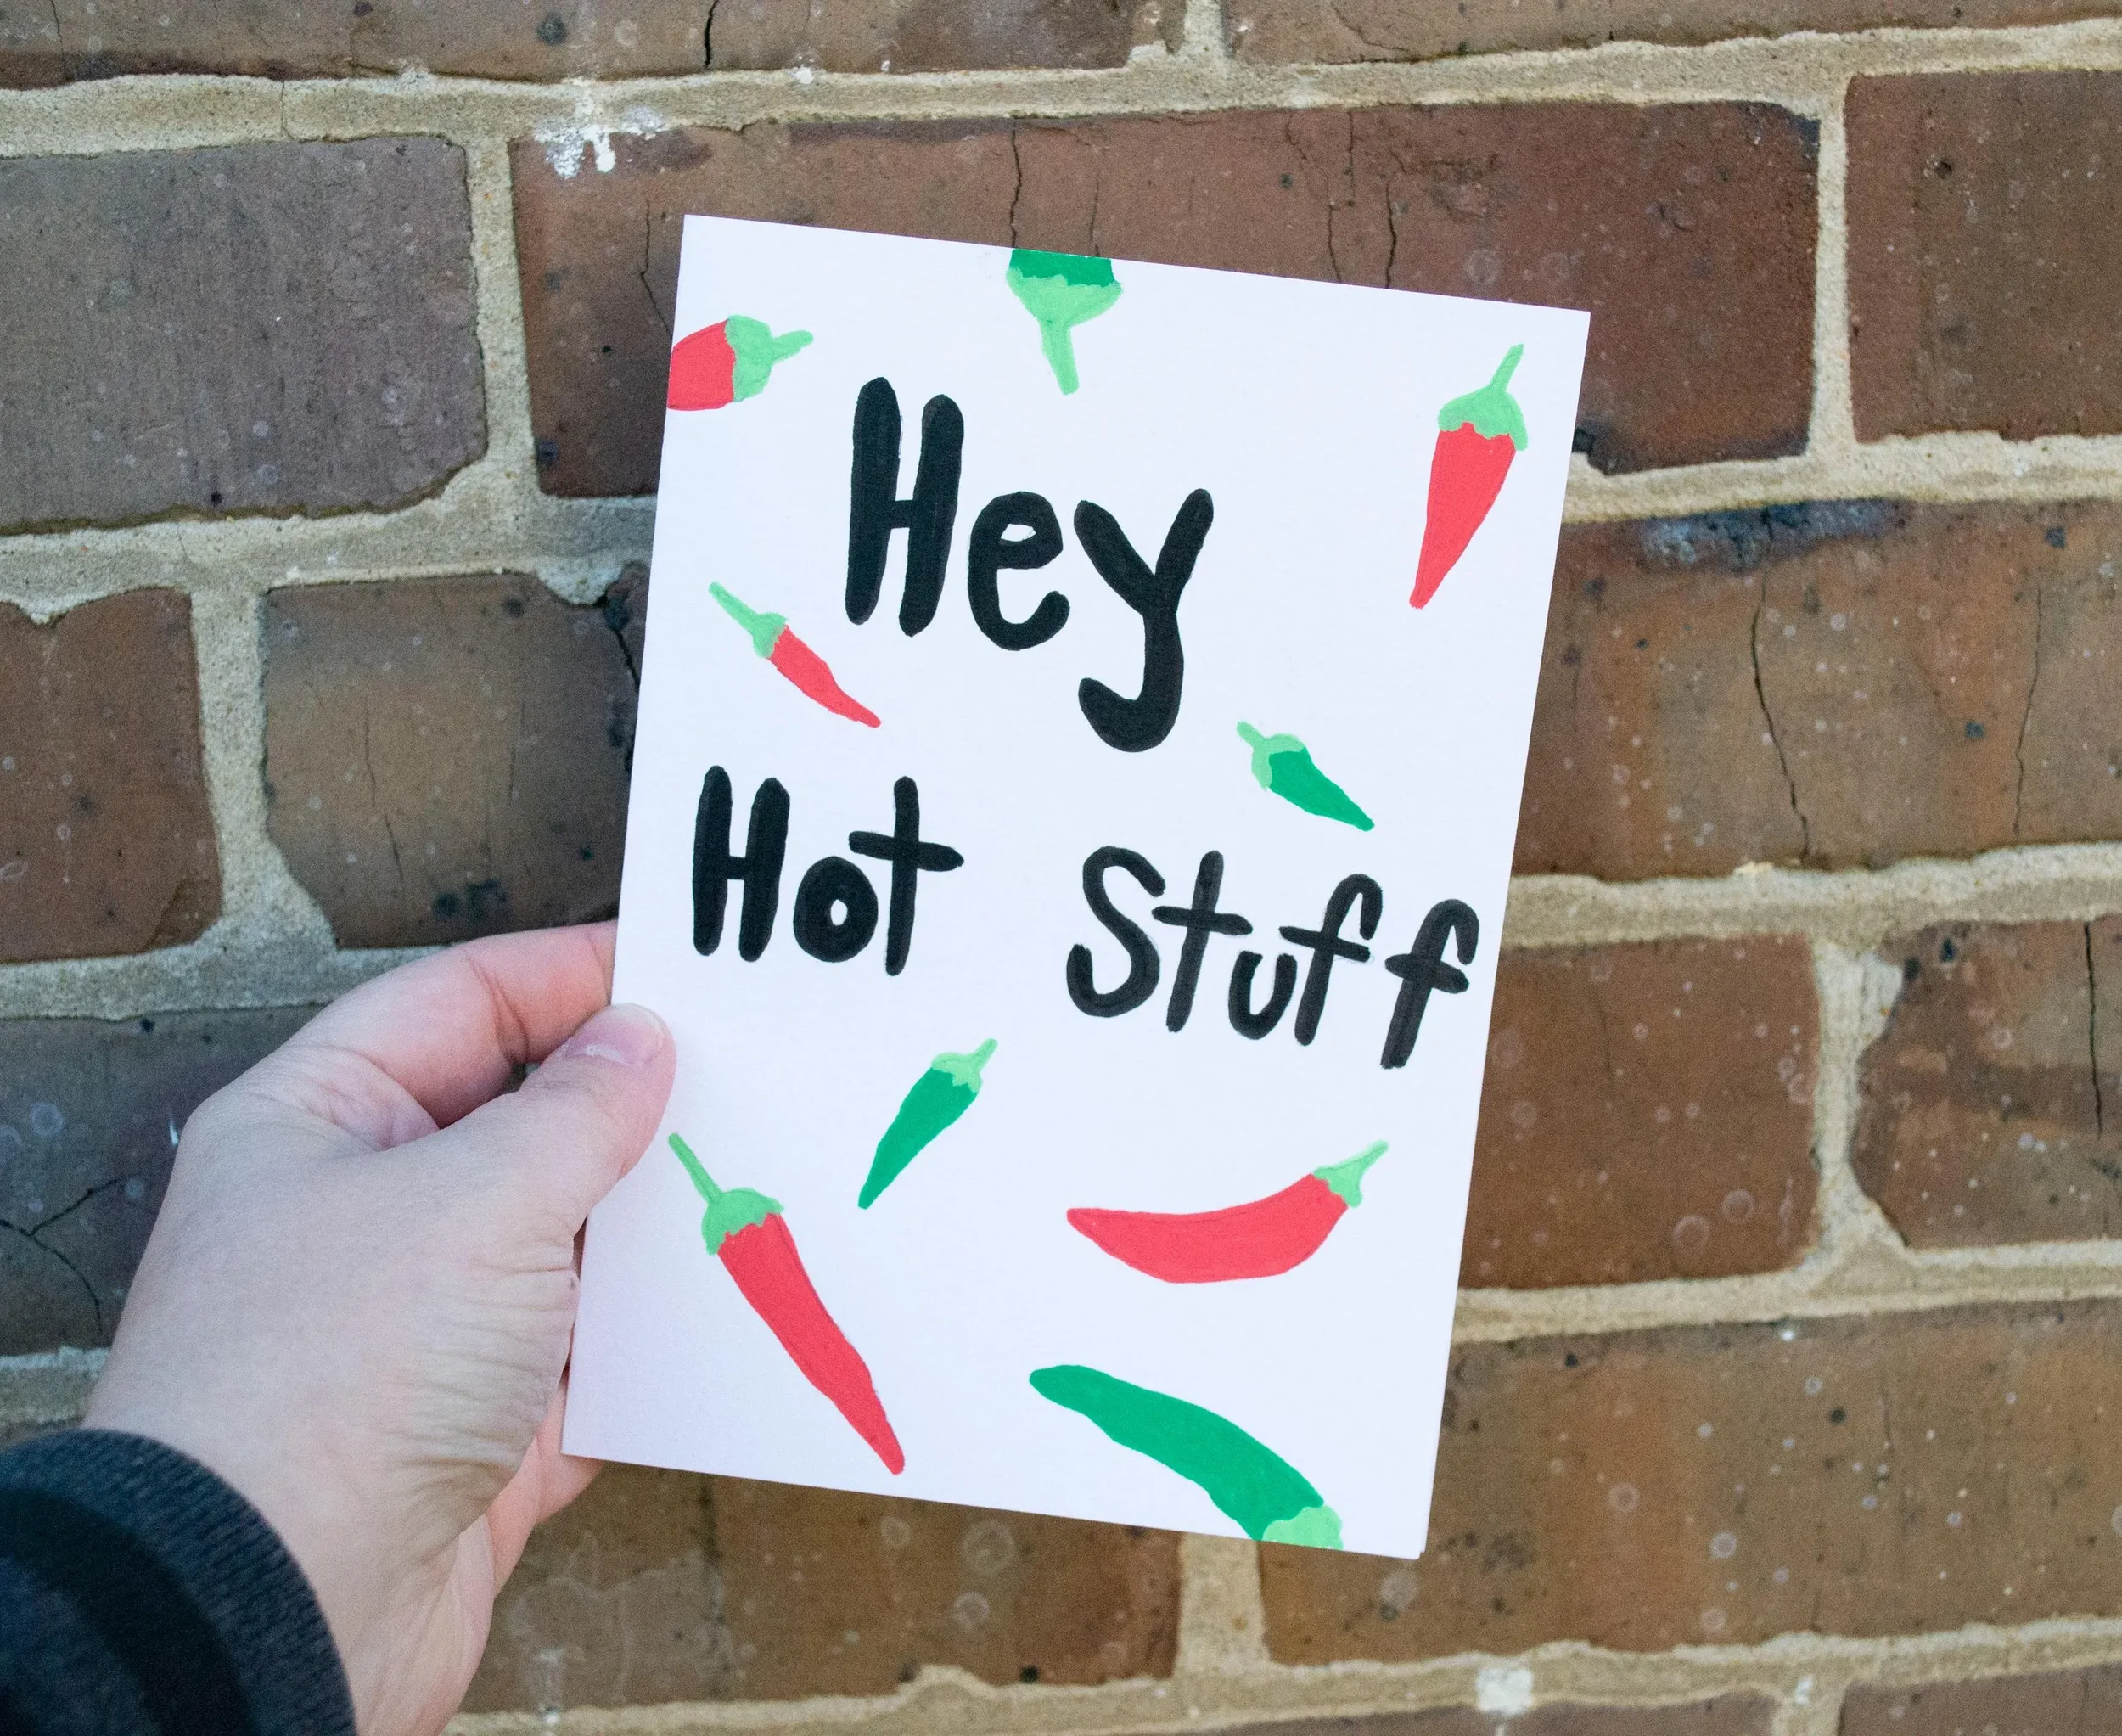 Hey
Hot Stuff